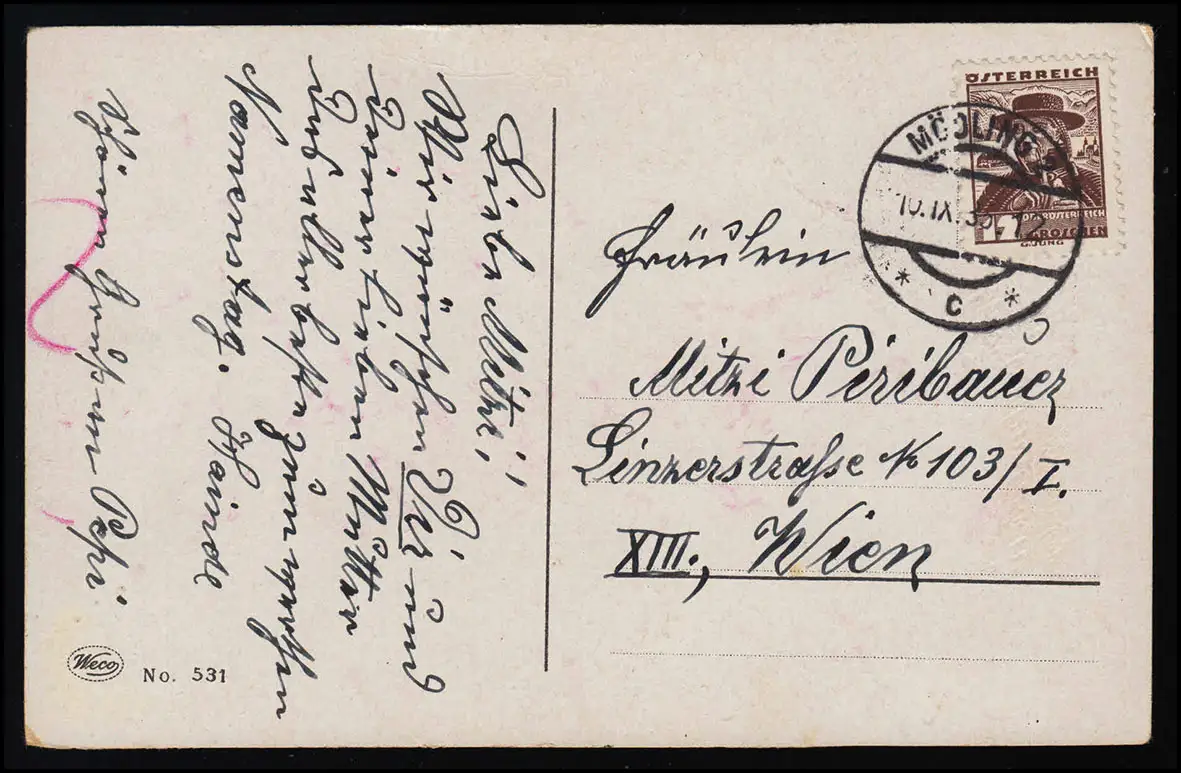 Liebe Mitzi,
Wir wünschen Dir und
Deiner lieben Mutter
das allerbeste zum werten
Namenstag.
Schöne Grüße Pepi
Fräulein
Mitzi Piribauer
Linzerstraße No 103/I.
XIII., Wien
ÖSTERREICH
OBERÖSTERREICH
GROSCHEN
G.JUNG
MÖDLING 2
10.IX.3 .12
* C *
Weco
No. 531